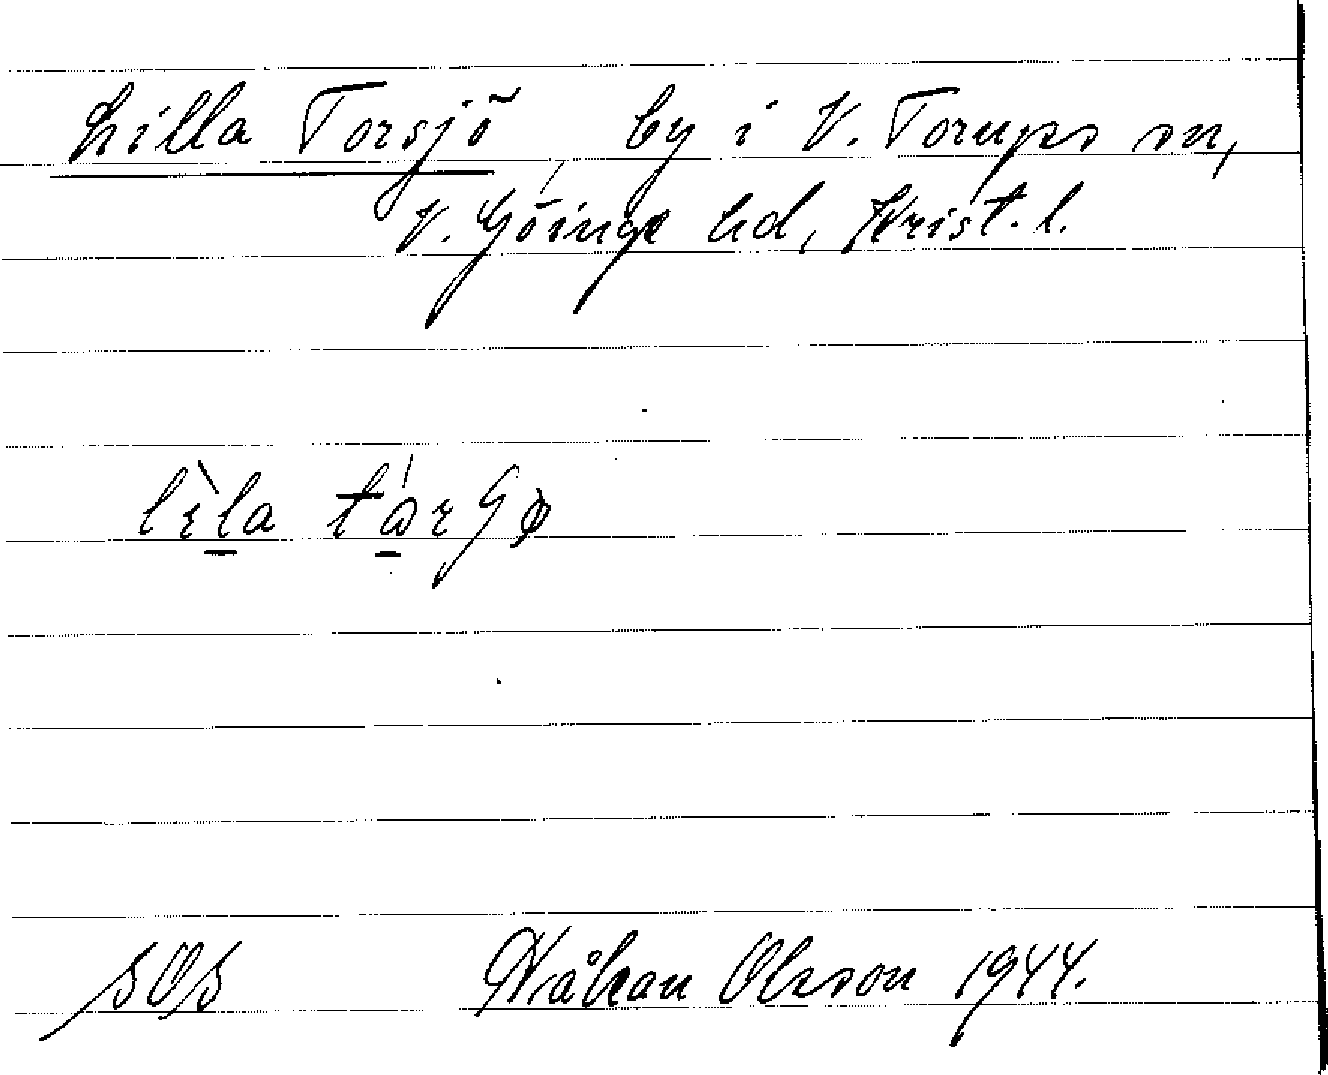 Lilla Torsjö by i V. Torups sn,
V. Göinge hd, Krist. l.
SOS Håkan Olsson 1944.